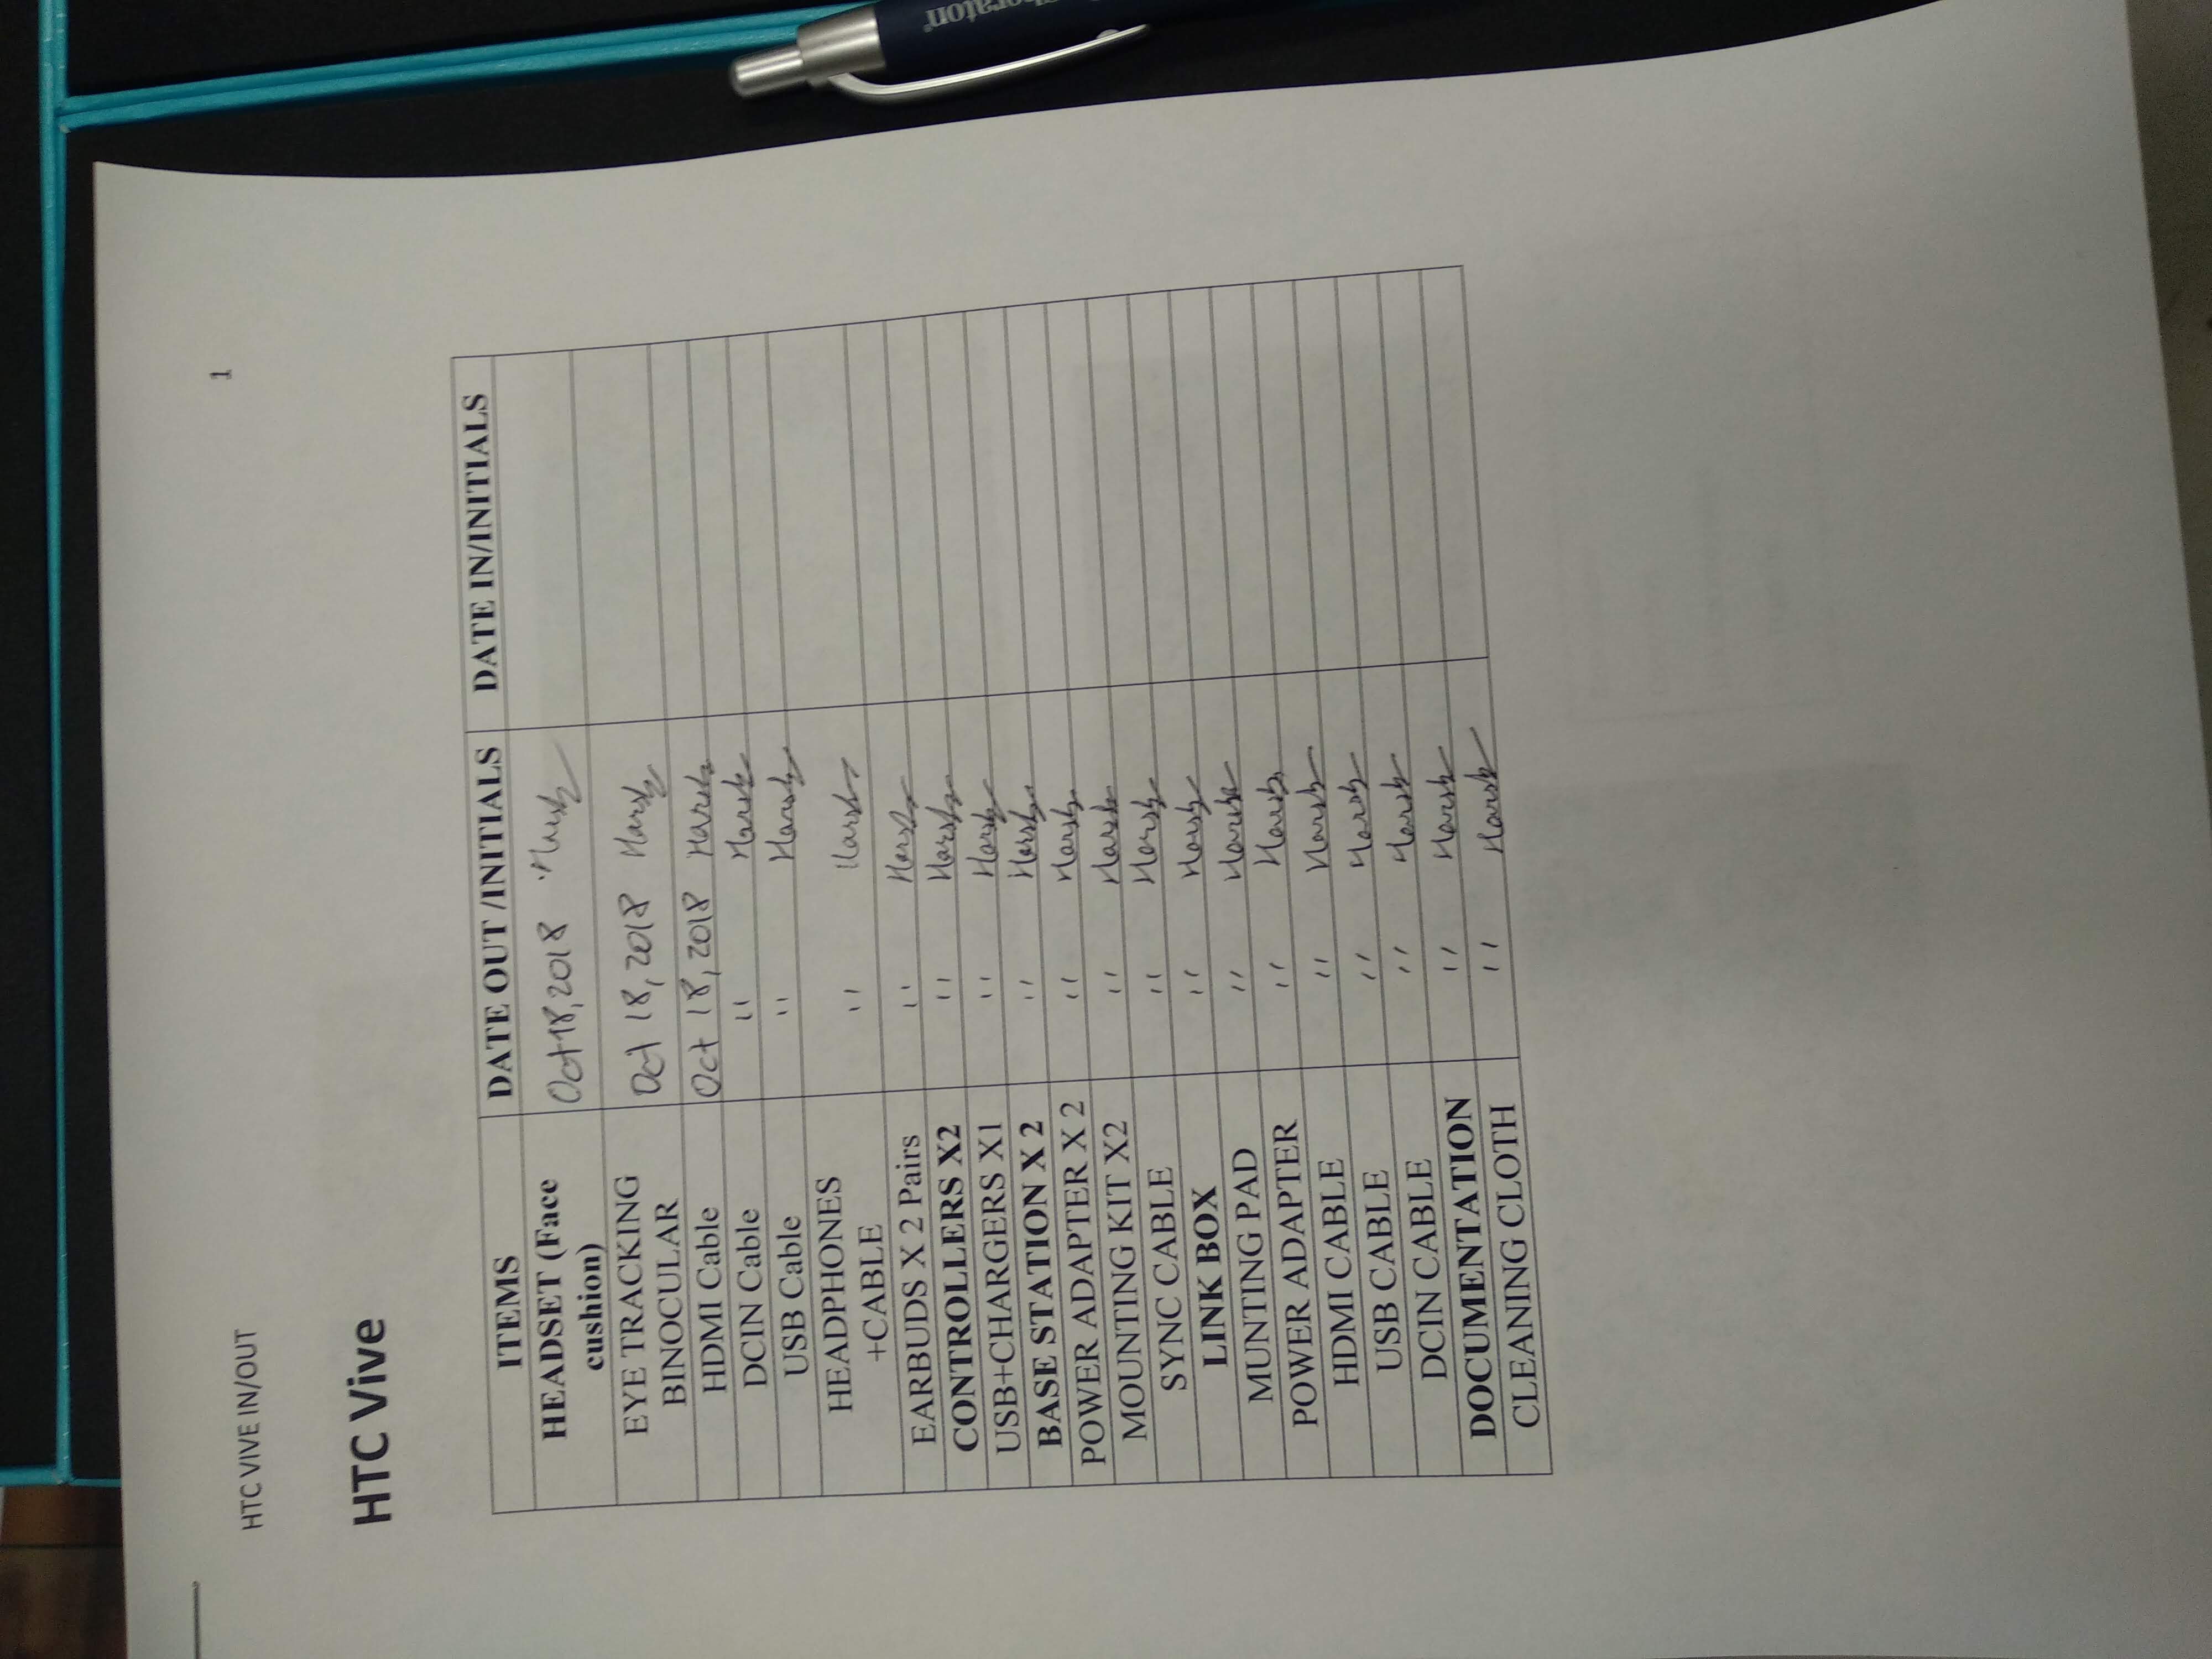 HTC VIVE IN/OUT 1
HTC Vive
ITEMS DATE OUT /INITIALS DATE IN/INITIALS
HEADSET (Face Oct 18, 2018 Harsh
cushion)
EYE TRACKING Oct 18, 2018 Harsh
BINOCULAR
HDMI Cable Oct 18, 2018 Harsh
DCIN Cable " Harsh
USB Cable " Harsh
HEADPHONES " Harsh
+CABLE
EARBUDS X 2 Pairs " Harsh
CONTROLLERS X2 " Harsh
USB+CHARGERS X1 " Harsh
BASE STATION X 2 " Harsh
POWER ADAPTER X 2 " Harsh
MOUNTING KIT X2 " Harsh
SYNC CABLE " Harsh
LINK BOX " Harsh
MUNTING PAD " Harsh
POWER ADAPTER " Harsh
HDMI CABLE " Harsh
USB CABLE " Harsh
DCIN CABLE " Harsh
DOCUMENTATION " Harsh
CLEANING CLOTH " Harsh